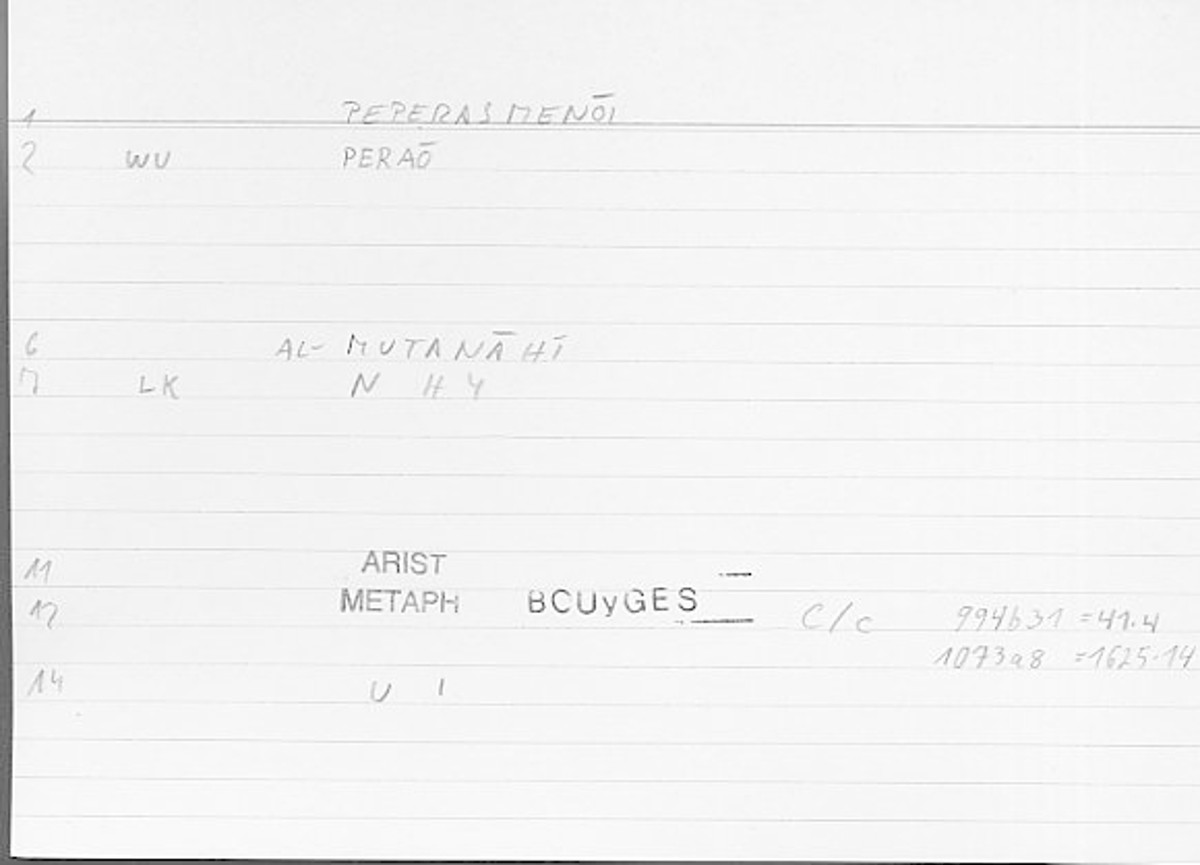 1 PEPERASMENŌI
2 WU PERAŌ
6 AL- MUTANĀHĪ
7 LK N H Y
11 ARIST
12 METAPH BOUyGES C/c 994b31 =41.4
1073a8 =1625.14
14 U I